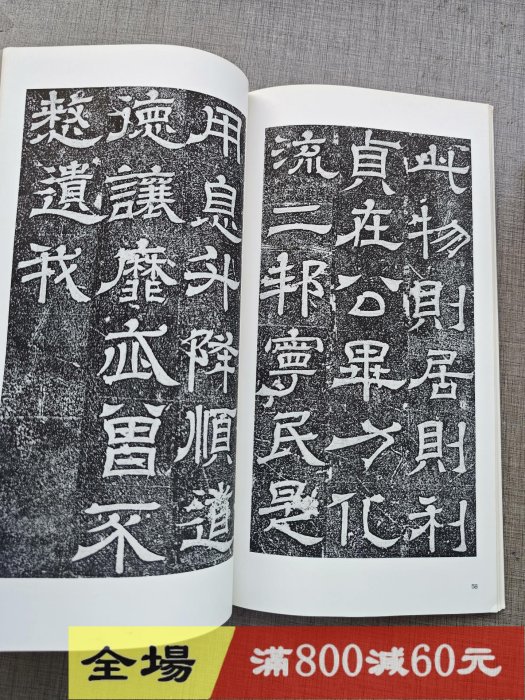 此物則居則利
貞在公畢力化
流二邦寧民是
用息升降順道
德讓靡忒曾不
憖遺我
58
全場
滿800減60元